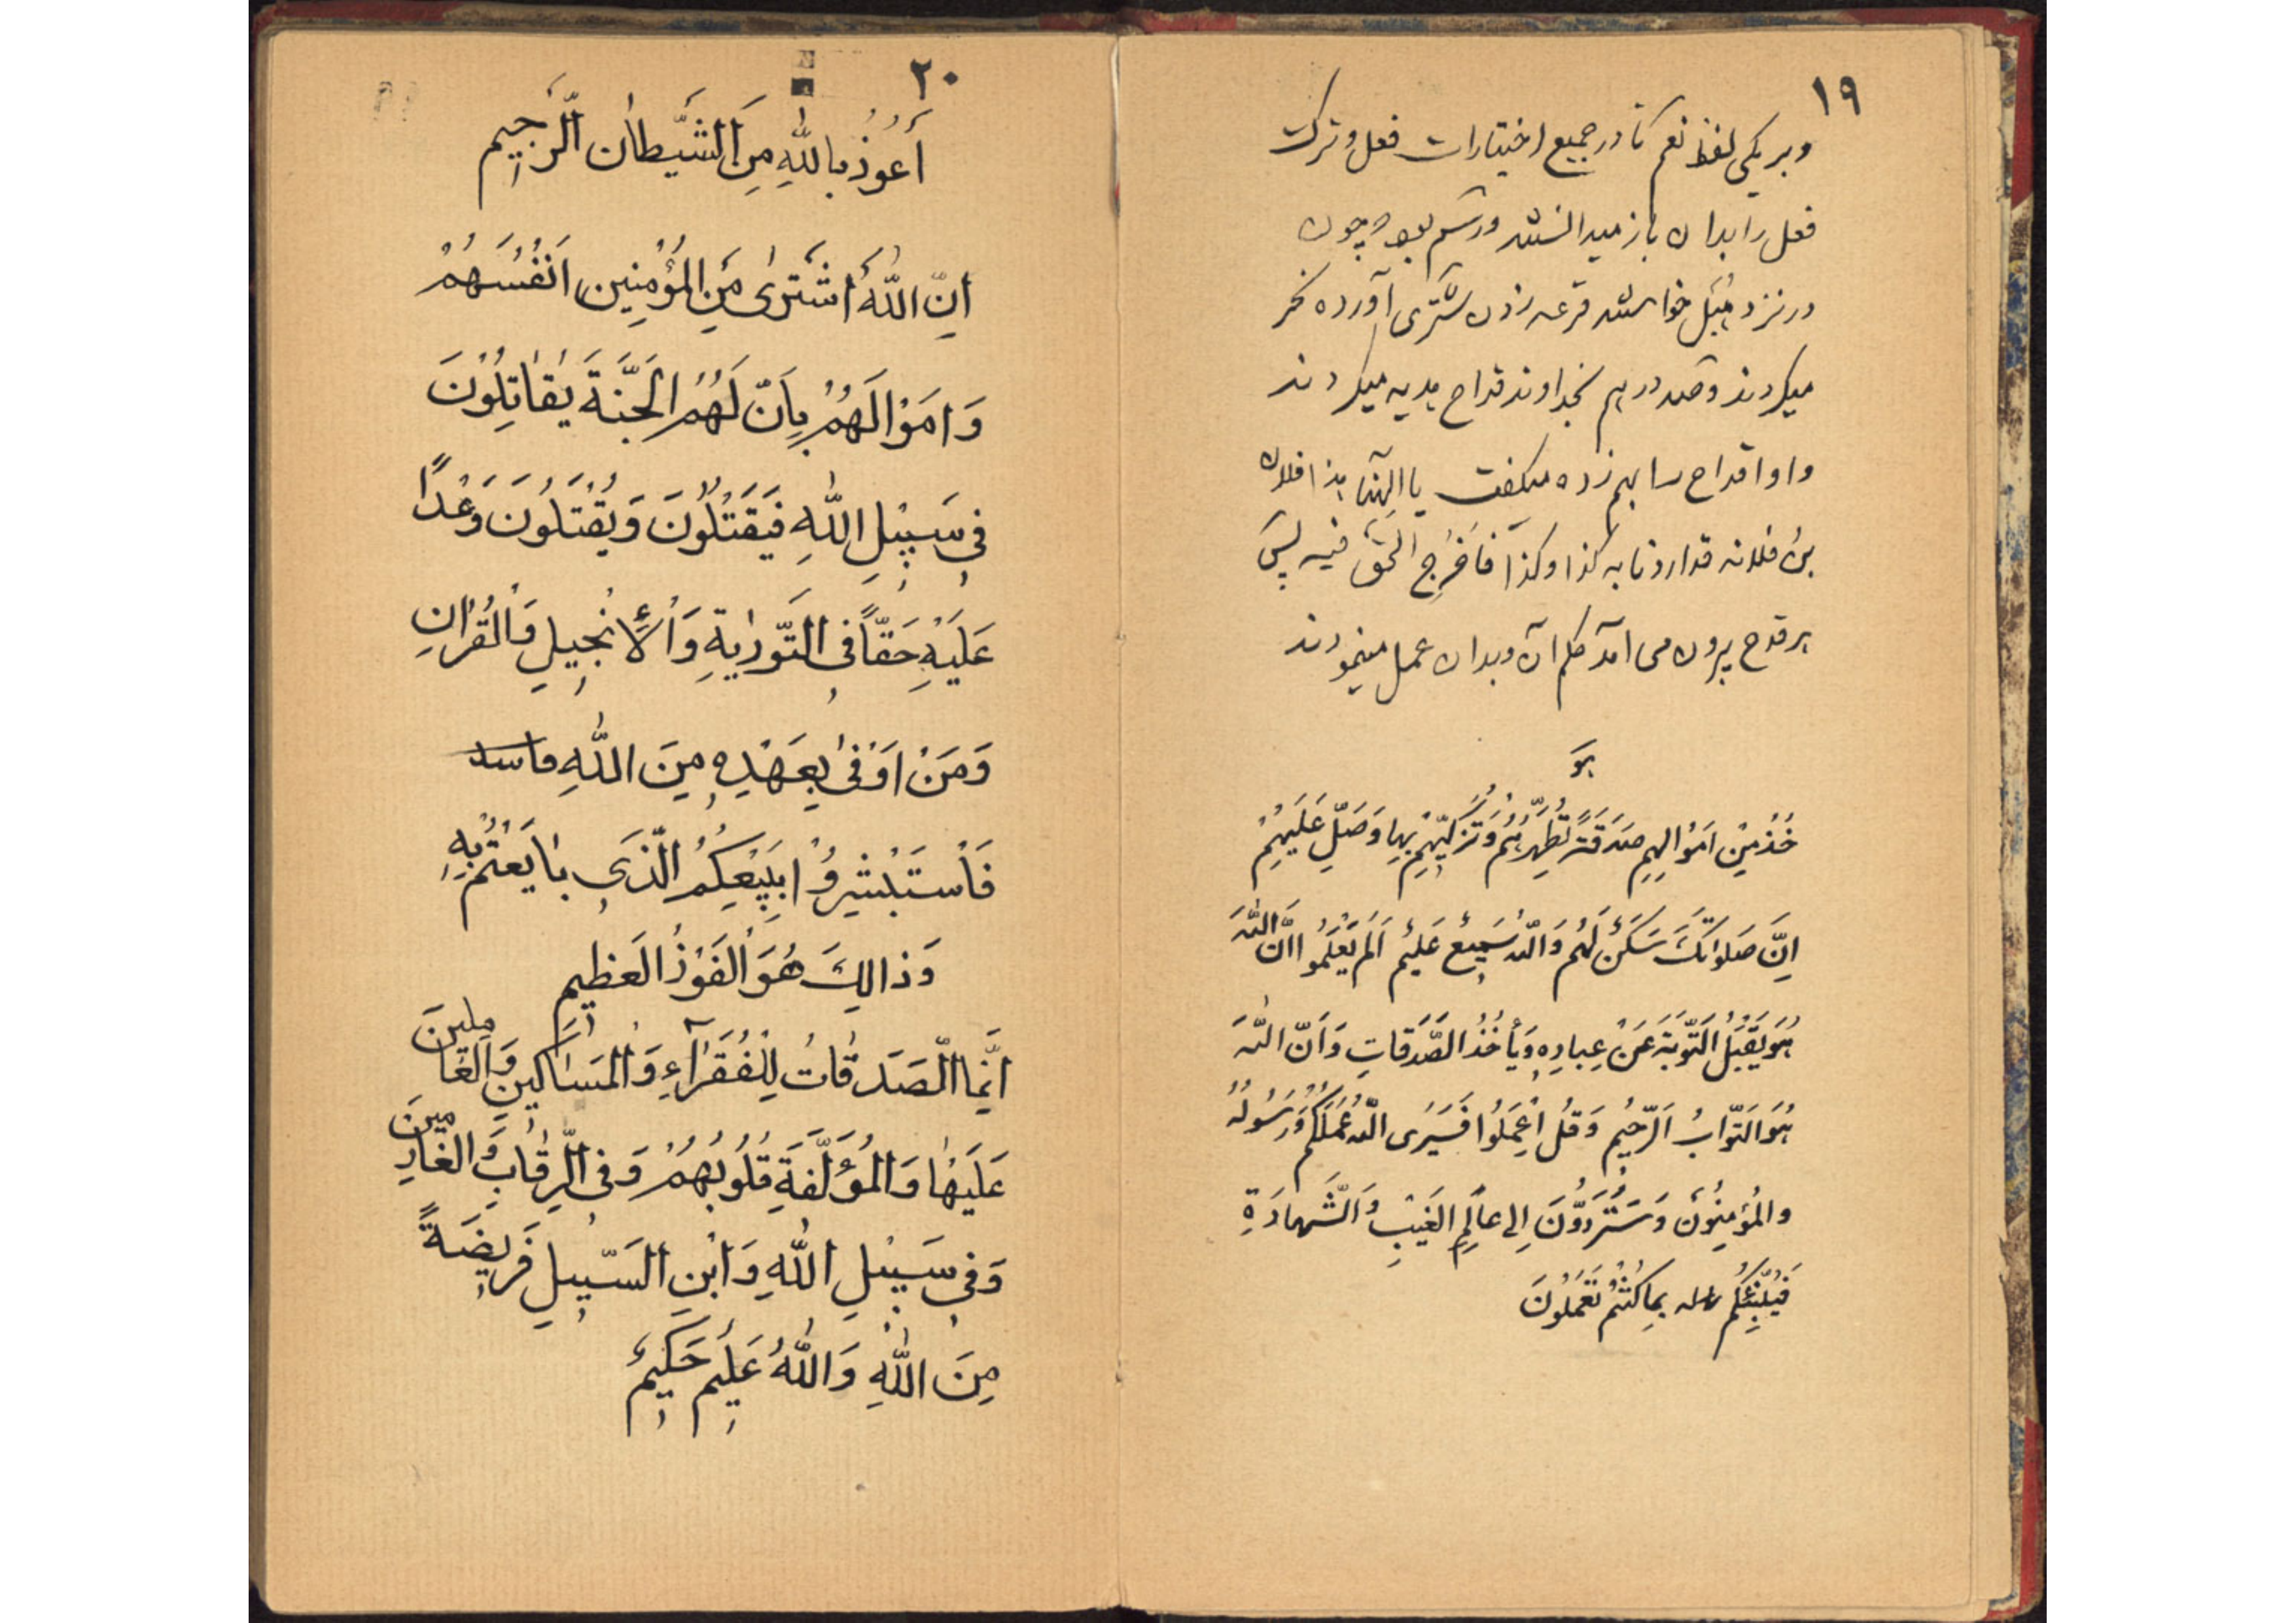 ١٩
وبر یکی لفظ نعم تا در جمیع اختیارات فعل و ترک
فعل را بدان باز میدانستند و رسم بود چون
در نزد هبل خواستند قرعه زدن شتری آورده نحر
میکردند و صد درهم بخداوند قداح هدیه میکردند
و او اقداح را بهم زده میگفت یا الهنا هذا فلان
بن فلانه قد اردنا به کذا و کذا فاَخرِج الحَقّ فیه پس
هر قدح بیرون می آمد حکم آن و بدان عمل مینمودند
هو
خُذْ مِنْ اَمَوْالِهِم صَدَقَةً تُطَهِّرُهُمْ وَ تُزَکّیٖهِمْ بِها وَصَلِّ عَلَیَهِمْ
اِنَّ صَلَوٰاتَكَ سَکَنٌ لَهُم وَ اللّهُ سَمیٖعٌ عَلیٖمٌ اَلَمْ یَعْلَمُوا اَنَّ اللّٰهَ
هُوَ یَقْبَلُ التَّوْبَةَ عَنْ عِبادِهٖ وَ یَأخُذُ الصَّدَقاتِ وَ اَنّ اللّٰهَ
هُوَ التَّوّابُ الَرّحیٖمُ وَ قُلِ اعْمَلُوا فَسَیَرَی اللّٰهُ عَمَلَکُمْ وَرَسُولُهُ
والمُؤمِنُونَ وَ سَتُرَدُّونَ اِلی عالِمِ الغَیْبِ وَ الَشَّهادَةِ
فَیُنَبِّئُکُم بِما کُنْتُمْ تَعْمَلُونَ
٢٠
أَعُوذُ بِاللّٰهِ مِنَ الشَّیْطانِ الَرَّجیٖم
اِنّ اللّٰهَ اَشْتَریٰ مِنَ المُؤْمِنیٖنَ اَنْفُسَهُمْ
وَ اَمَوْالَهُمْ بِاَنّ لَهُمُ الجَنَّةَ یُقٰاتِلُوْنَ
فیٖ سَبیٖلِ اللّٰهِ فَیَقْتُلُونَ وَ یُقْتَلُونَ وَعْداً
عَلَیْهِ حَقّاً فیِ التَّوریٰةِ وَ الْأِنْجیٖلِ وَ الْقُرْانِ
وَ مَنْ اَوْفیٰ بِعَهْدِهٖ مِنَ اللّٰهِ
فَاْسْتَبْشِرُوْا بِبَیْعِکُمُ الّذیٖ بٰایَعْتُمْ بِهٖ
وَ ذالِكَ هُوَ الْفَوْزُ الَعظیٖم
اِنَّمَا الْصَدَقٰاتُ لِلْفُقَرٰآءِ وَ الْمَسٰاکیٖنِ وَ الْعٰامِلینَ
عَلَیْهٰا وَ الْمُؤَلَّفَةِ قُلُوبُهُمْ وَ فی الْرِّقٰابِ وَ الْغٰارِمیٖنَ
وَ فیٖ سَبیٖلِ اللّٰهِ وَ ابْنِ الْسَبّیٖلِ فَریٖضَةً
مِنَ اللّٰهِ وَ اللّٰهُ عَلیٖمٌ حَکیٖمٌ